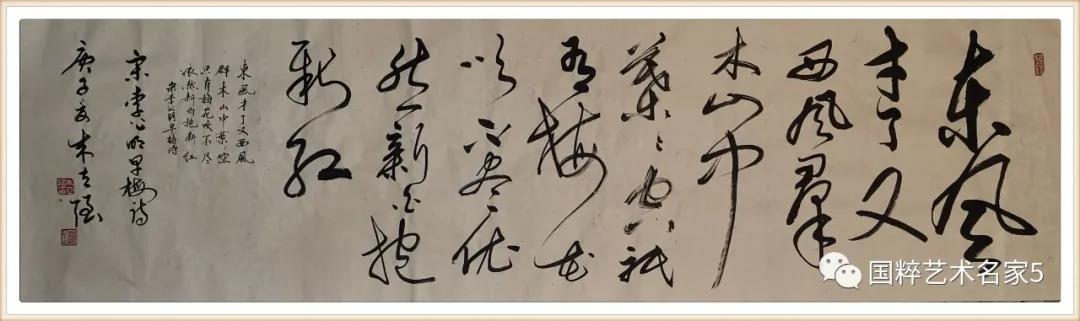 东风
才了又
西风羣
木山中
葉〻空祇
有梅花
吹不尽依
然新白抱
新红
東風才了又西風
群木山中葉〻空
只有梅花吹不尽
依然新白抱新红
宋李公明早梅诗
宋李公明早梅诗
庚子夏朱
国粹艺术名家5